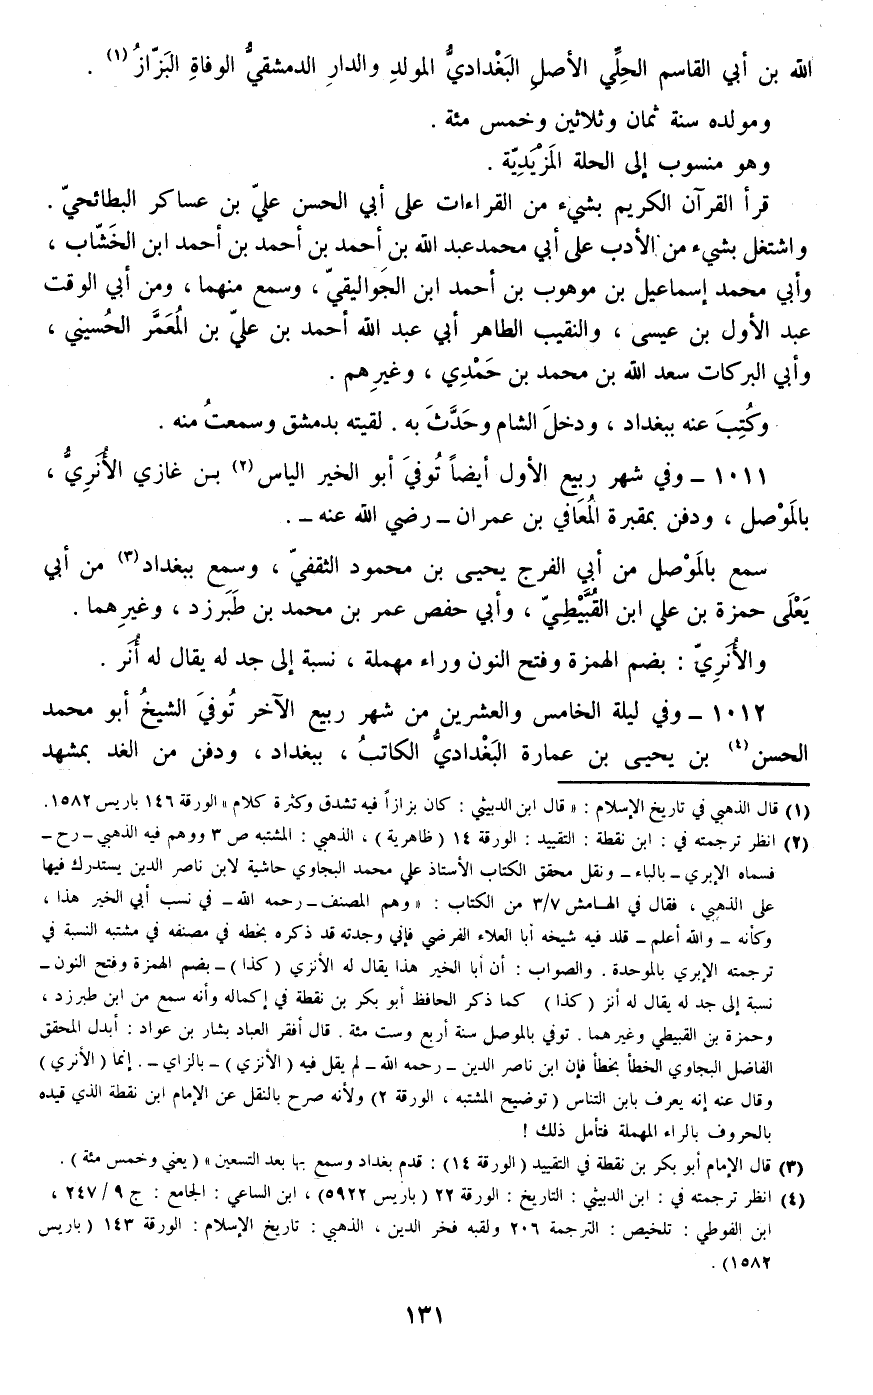 الله بن أبي القاسم الحِلِّي الأصلِ البَغْداديُّ المولدِ والدارِ الدمشقيُّ الوفاةِ البَزّازُ (١) .
ومولده سنة ثمان وثلاثين وخمس مئة .
وهو منسوب إلى الحلة المَزْيَدِيّة .
قرأ القرآن الكريم بشيء من القراءات على أبي الحسن عليّ بن عساكر البطائحيّ .
واشتغل بشيء من الأدب على أبي محمد عبد الله بن أحمد بن أحمد بن أحمد ابن الخَشّاب ،
وأبي محمد إسماعيل بن موهوب بن أحمد ابن الجَواليقيّ ، وسمع منهما ، ومن أبي الوقت
عبد الأول بن عيسى ، والنقيب الطاهر أبي عبد الله أحمد بن عليّ بن المُعَمَّر الحُسيني ،
وأبي البركات سعد الله بن محمد بن حَمْدِي ، وغيرِهم .
وكُتِبَ عنه ببغداد ، ودخلَ الشام وحَدَّثَ به . لقيته بدمشق وسمعتُ منه .
١٠١١ ــ وفي شهر ربيع الأول أيضاً تُوفيَ أبو الخير الياس (٢) بـن غازي الأُنَرِيُّ ،
بالمَوْصل ، ودفن بمقبرة المُعَافي بن عمران ــ رضي الله عنه ــ .
سمع بالمَوْصل من أبي الفرج يحيـى بن محمود الثقفيّ ، وسمع ببغداد (٣) من أبي
يَعْلَى حمزة بن علي ابن القُبَّيْطِيّ ، وأبي حفص عمر بن محمد بن طَبَرزد ، وغيرِهما .
والأُنَريّ : بضم الهمزة وفتح النون وراء مهملة ، نسبة إلى جد له يقال له أُنَر .
١٠١٢ ــ وفي ليلة الخامس والعشرين من شهر ربيع الآخر تُوفيَ الشيخُ أبو محمد
الحسن (٤) بن يحيـى بن عمارة البَغْداديُّ الكاتبُ ، ببغداد ، ودفن من الغد بمشهد
(١) قال الذهبي في تاريخ الإسلام : « قال ابن الدبيثي : كان بزازاً فيه تشدق وكثرة كلام » الورقة ١٤٦ باريس ١٥٨٢.
(٢) انظر ترجمته في : ابن نقطة : التقييد : الورقة ١٤ ( ظاهرية ) ، الذهبي : المشتبه ص ٣ ووهم فيه الذهبي ــ رح ــ
فسماه الإبري ــ بالباء ــ ونقل محقق الكتاب الأستاذ علي محمد البجاوي حاشية لابن ناصر الدين يستدرك فيها
على الذهبي ، فقال في الهـامش ٣/٧ من الكتاب : « وهم المصنف ــ رحمه الله ــ في نسب أبي الخير هذا ،
وكأنه ــ والله أعلم ــ قلد فيه شيخه أبا العلاء الفرضي فإني وجدته قد ذكره بخطه في مصنفه في مشتبه النسبة في
ترجمته الإبري بالموحدة . والصواب : أن أبا الخير هذا يقال له الأنزي ( كذا ) ــ بضم الهمزة وفتح النون ــ
نسبة إلى جد له يقال له أنز ( كذا ) كما ذكر الحافظ أبو بكر بن نقطة في إكماله وأنه سمع من ابن طبرزد ،
وحمزة بن القبيطي وغيرهما . توفي بالموصل سنة أربع وست مئة . قال أفقر العباد بشار بن عواد : أبدل المحقق
الفاضل البجاوي الخطأ بخطأ فإن ابن ناصر الدين ــ رحمه الله ــ لم يقل فيه ( الأنزي ) ــ بالزاي ــ . إنما ( الأنري )
وقال عنه إنه يعرف بابن التناس ( توضيح المشتبه ، الورقة ٢) ولأنه صرح بالنقل عن الإمام ابن نقطة الذي قيده
بالحروف بالراء المهملة فتأمل ذلك !
(٣) قال الإمام أبو بكر بن نقطة في التقييد ( الورقة ١٤) : قدم بغداد وسمع بها بعد التسعين » ( يعني وخمس مئة ) .
(٤) انظر ترجمته في : ابن الدبيثي : التاريخ : الورقة ٢٢ ( باريس ٥٩٢٢) ، ابن الساعي : الجامع : ج ٩ / ٢٤٧ ،
ابن الفوطي : تلخيص : الترجمة ٢٠٦ ولقبه فخر الدين ، الذهبي : تاريخ الإسلام : الورقة ١٤٣ ( باريس
١٥٨٢) .
١٣١